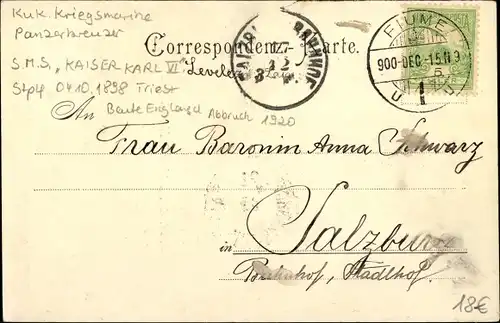 Kuk. Kriegsmarine
Panzerkreuzer
S.M.S. „KAISER KARL VI"
Stpl 04.10.1898 Triest
Beute England Abbruch 1920
Correspondenz-Karte.
Levelez
FIUME
900-DEC.-15.
BAHNHOF
17.
12
An
Frau Baronin Anna Schwarz
in Salzburg
Bahnhof, Stadlhof.
18€